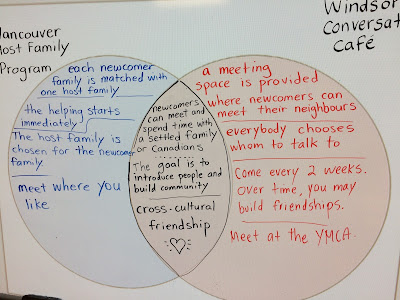 Vancouver
Host Family
Program
each newcomer
family is matched with
one host family
the helping starts
immediately
The host family is
chosen for the newcomer
family
meet where you
like
newcomers
can meet and
spend time with
a settled family
or Canadians
The goal is to
introduce people and
build community
cross-cultural
friendship
Windsor
Conversat
Café
a meeting
space is provided
where newcomers can
meet their neighbours
everybody chooses
whom to talk to
Come every 2 weeks.
Over time, you may
build friendships.
Meet at the YMCA.